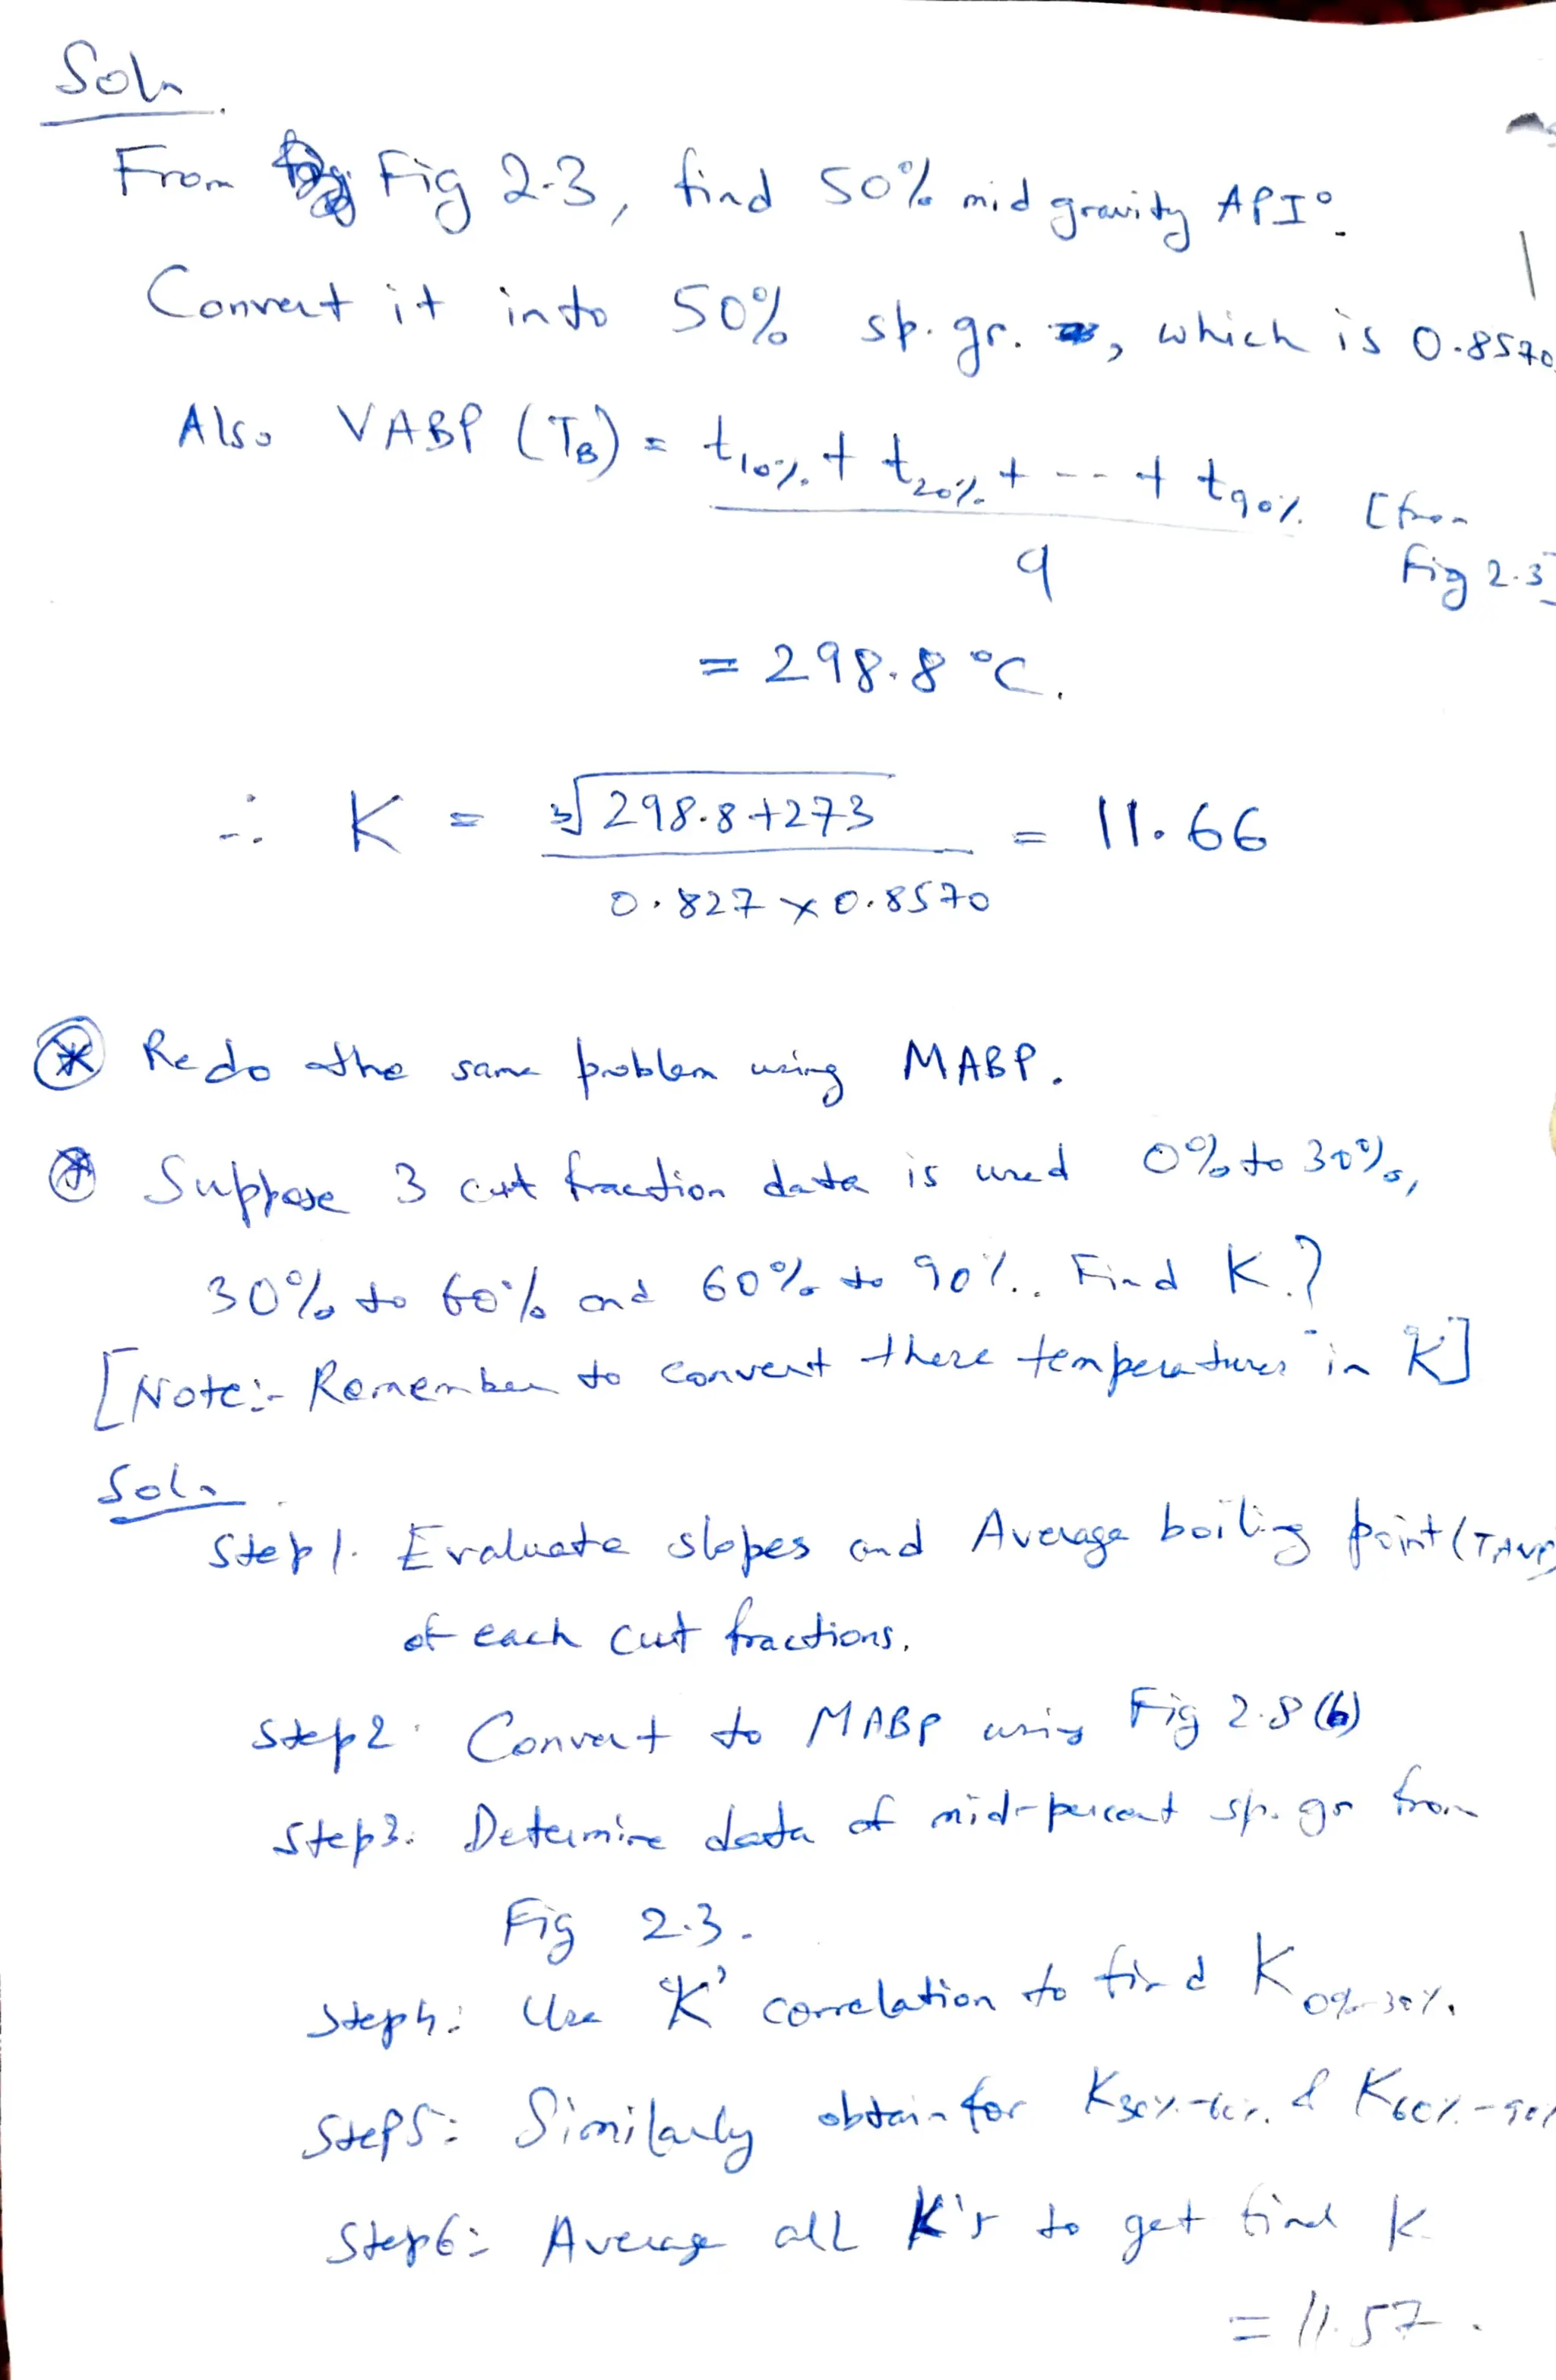 Soln.
From Fig 2.3, find 50% mid gravity API°.
Convert it into 50% sp. gr. , which is 0.8570.
Also VABP (TB) = t10% + t20% + --- + t90% [from
9 Fig 2.3]
= 298.8 °C.
∴ K = ∛298.8+273 = 11.66
0.827 × 0.8570
⊛ Redo the same problem using MABP.
⊛ Suppose 3 cut fraction data is used 0% to 30%,
30% to 60% and 60% to 90%. Find K.?
[Note:- Remember to convert these temperatures in °K]
Soln.
Step 1. Evaluate slopes and Average boiling point (TAVG)
of each cut fractions.
Step 2. Convert to MABP using Fig 2.8 (b)
Step 3. Determine data of mid-percent sp. gr from
Fig 2.3.
Step 4: Use 'K' correlation to find K0%-30%.
Step 5: Similarly obtain for K30%-60%. & K60%-90%
Step 6: Average all K's to get final K.
= 11.57.